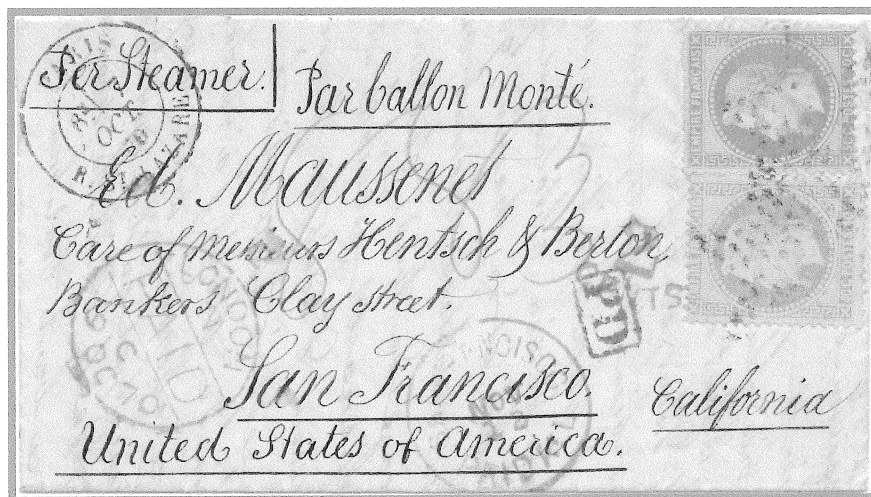 Per Steamer.
Par ballon Monté.
Ed. Maussenet
Care of Messieurs Hentsch & Berton,
Bankers Clay street.
San Francisco.
California
United States of America.
PARIS
OCT.
R. ST LAZARE
EMPIRE FRANÇAIS
PD
LONDON
PAID